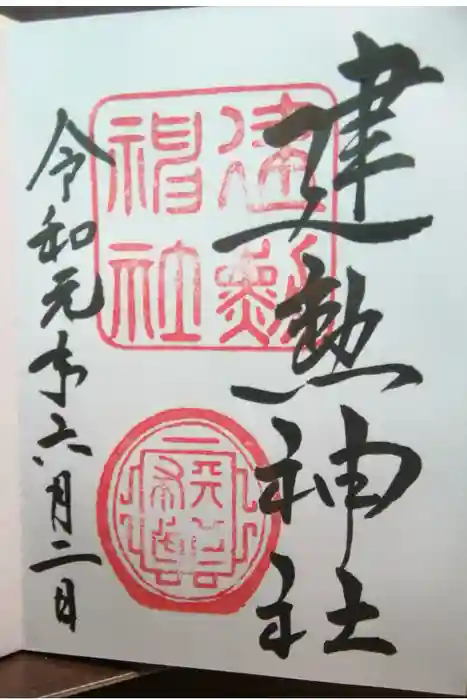 建勲神社
建勲神社
令和元年六月二日